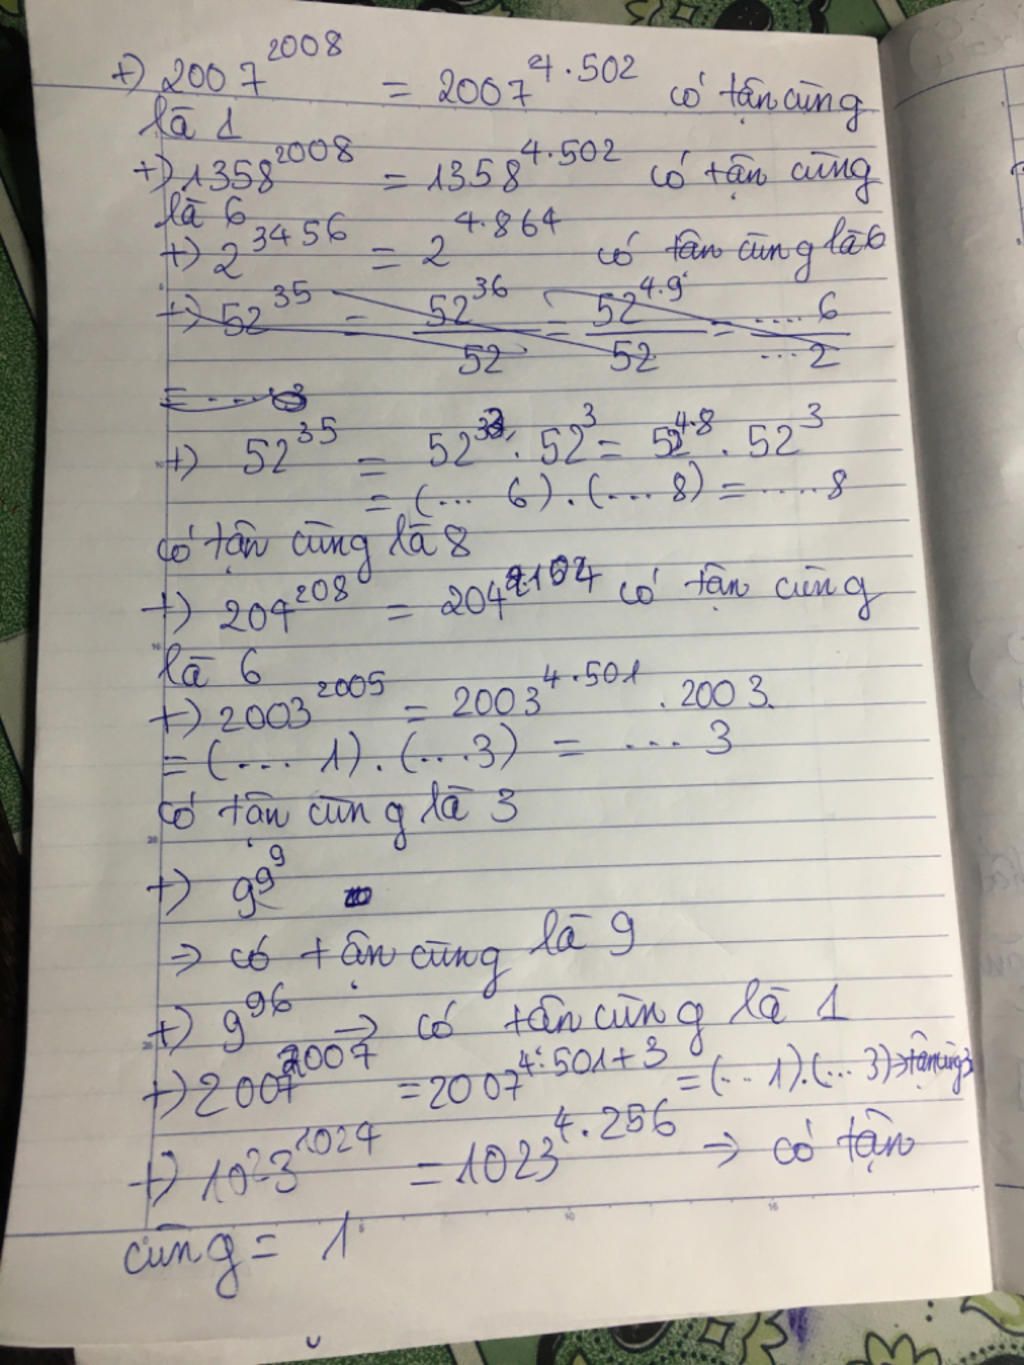 +) 2007^2008 = 2007^4.502 có tận cùng
là 1
+) 1358^2008 = 1358^4.502 có tận cùng
là 6
+) 2^3456 = 2^4.864 có tận cùng là 6
+) 52^35 = 52^36/52 = 52^4.9/52 = ....6/...2
= ....3
+) 52^35 = 52^32 . 52^3 = 52^4.8 . 52^3
= (... 6) . (.... 8) = ..... 8
có tận cùng là 8
+) 204^208 = 204 có tận cùng
là 6
+) 2003^2005 = 2003^4.501 . 2003
= (... 1) . (... 3) = .... 3
có tận cùng là 3
+) 9^9^9
⇒ có tận cùng là 9
+) 9^96 ⇒ có tận cùng là 1
+) 2007^2007 = 2007^4.501+3 = (... 1).(... 3) ⇒ tận cùng 3
+) 1023^1024 = 1023^4.256 ⇒ có tận
cùng = 1